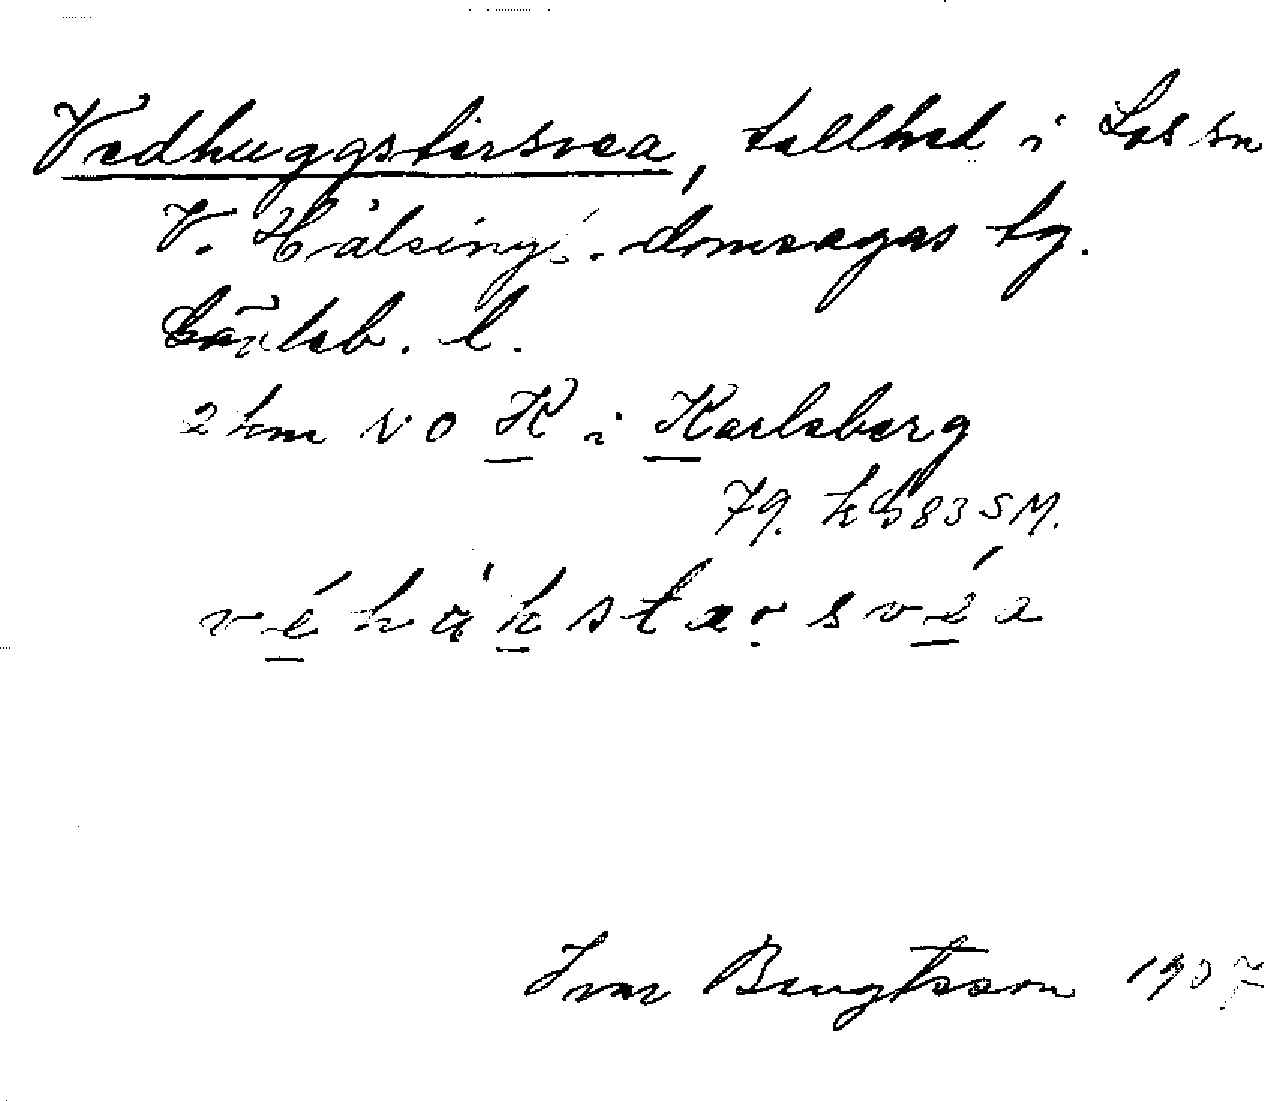 Vedhuggstersvea, tallhed i Los sn
V. Hälsingl. domsagas tg.
Gävleb. l.
2 km NO K i Karlsberg
79. k 683 SM.
vé h å k s t a r s v é a
Ivar Bengtsson 1937